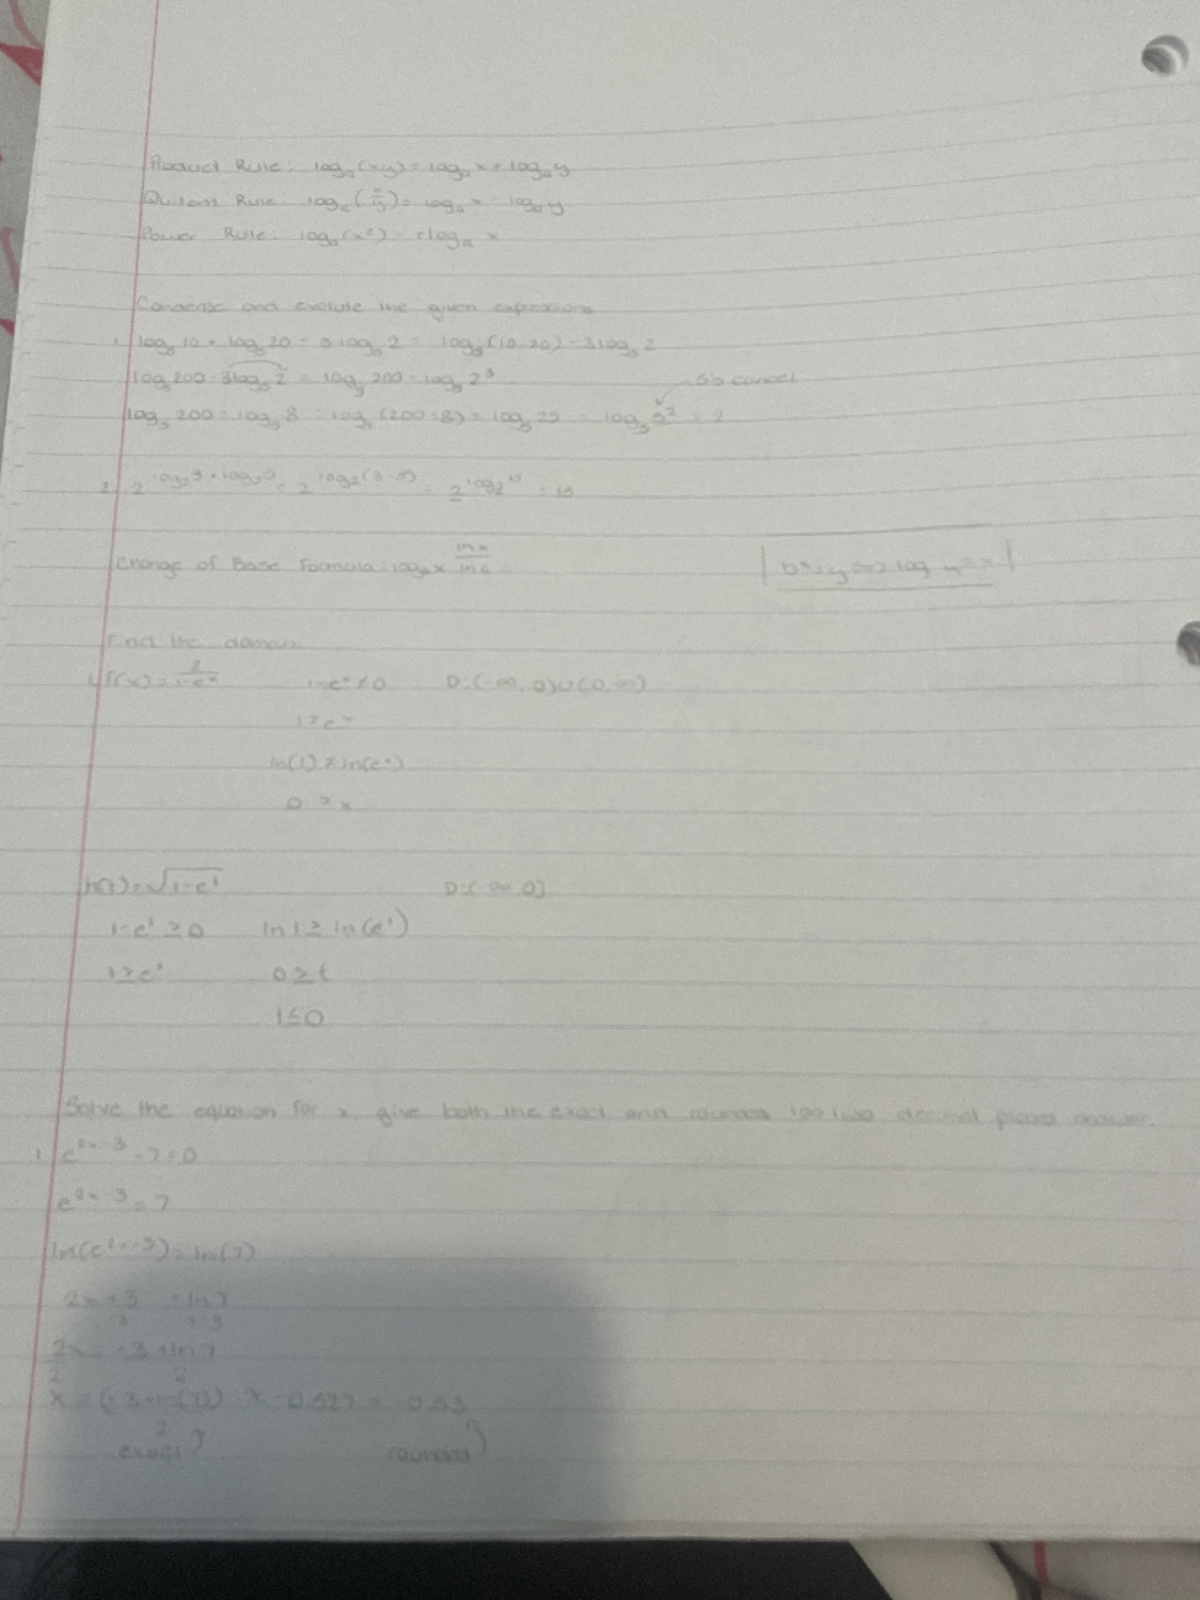 Product Rule: logₐ(xy) = logₐ x + logₐ y
Rule: logₐ(x/y) = logₐ x - logₐ y
Power Rule: logₐ(xʳ) = r logₐ x
and the given expressions
1. log₅ 10 + log₅ 20 - 3 log₅ 2 = log₅(10·20) - 3 log₅ 2
log₅ 200 - 3 log₅ 2 = log₅ 200 - log₅ 2³
5's cancel
log₅ 200 - log₅ 8 = log₅(200÷8) = log₅ 25 = log₅ 5² = 2
2. 2^(log₂ 3 + log₂ 5) = 2^(log₂(3·5)) = 2^(log₂ 15) = 15
Change of Base Formula: logₐ x ln x / ln a
Find the domain
1. f(x) = 2/(1-eˣ) 1-eˣ ≠ 0 D: (-∞, 0)∪(0, ∞)
1 ≠ eˣ
ln(1) ≠ ln(eˣ)
0 ≠ x
h(t) = √(1-eᵗ) D: (-∞ 0]
1-eᵗ ≥ 0 ln 1 ≥ ln(eᵗ)
1 ≥ eᵗ 0 ≥ t
t ≤ 0
Solve the equation for x, give both the exact and rounded two decimal places answer.
1. e^(2x+3) - 7 = 0
e^(2x+3) = 7
ln(e^(2x+3)) = ln(7)
2x + 3 = ln 7
-3 -3
2x = -3 + ln 7
2 2
x = (-3+ln(7)) ≈ -0.527 = -0.53
2
exact rounded